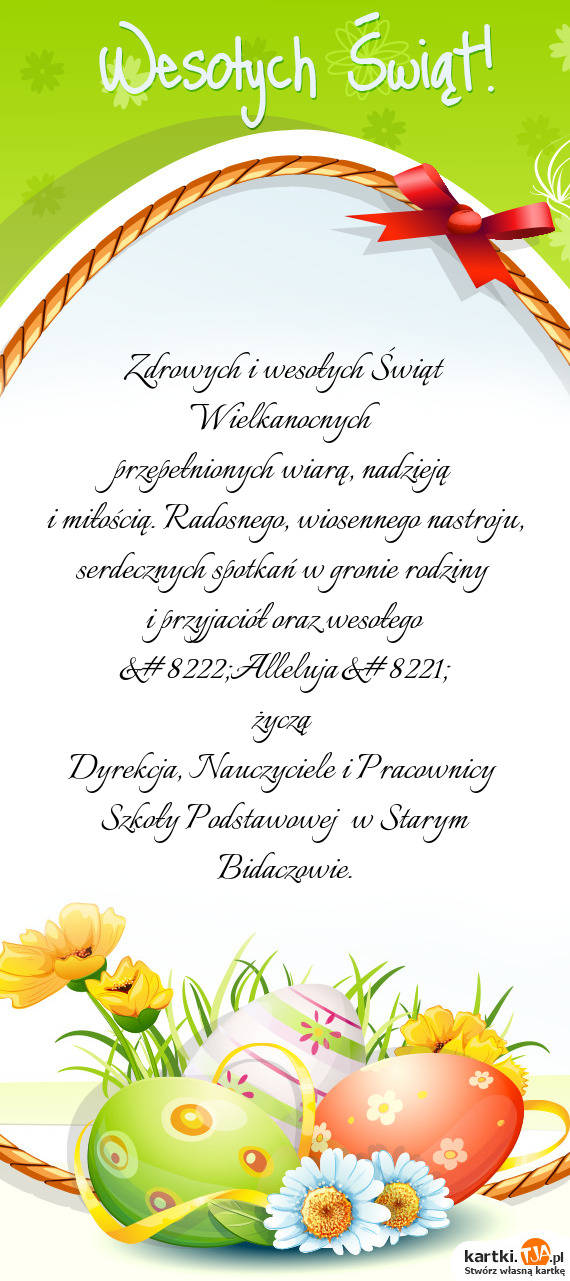 Wesołych Świąt!
Zdrowych i wesołych Świąt
Wielkanocnych
przepełnionych wiarą, nadzieją
i miłością. Radosnego, wiosennego nastroju,
serdecznych spotkań w gronie rodziny
i przyjaciół oraz wesołego
&#8222;Alleluja&#8221;
życzą
Dyrekcja, Nauczyciele i Pracownicy
Szkoły Podstawowej w Starym
Bidaczowie.
kartki.TJA.pl
Stwórz własną kartkę